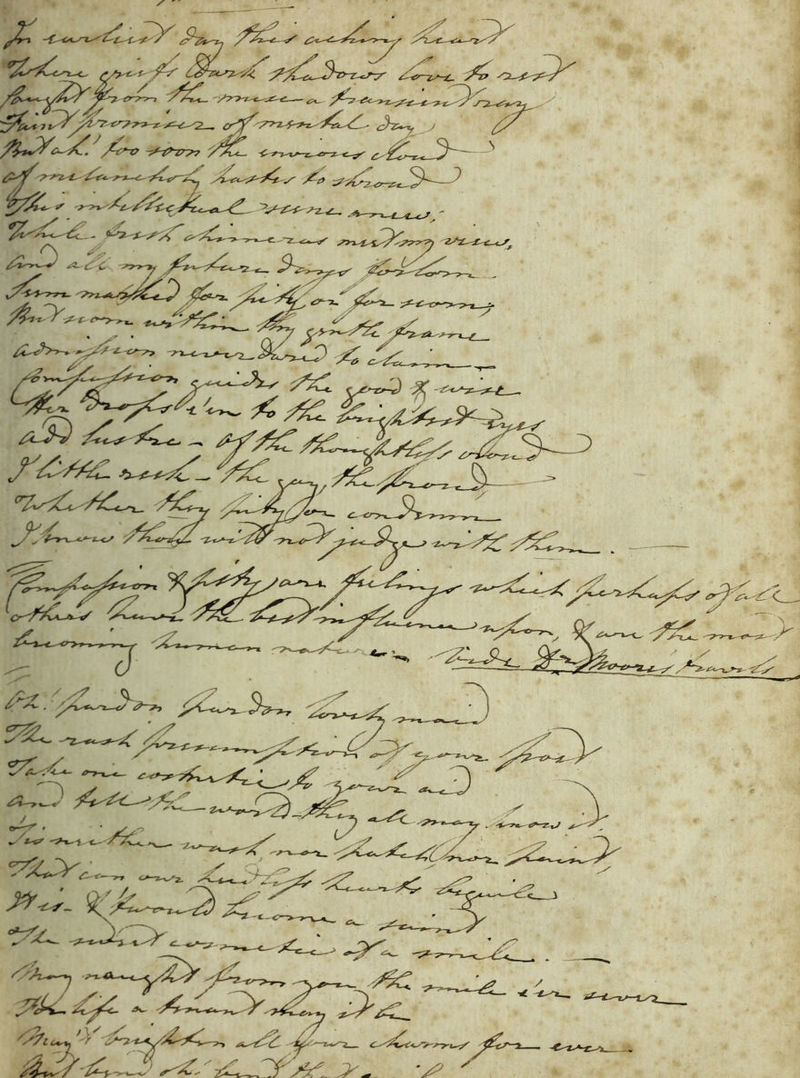 In earliest day this aching heart
Where griefs dark shadows love to rest
Caught from the muse a transient ray
Faint promise of mental day
But ah! too soon the envious cloud
of melancholy hastes to shroud
This intellectual scene anew;
While fresh chimeras meet my view,
And all my future days forlorn
Seem marked for pity or for scorn
But scorn within thy gentle frame
admission never dared to claim
Compassion guides the good & wise
Her drops e'en to the brightest Eyes
add lustre - Of the thoughtless crowd
I little reck - the gay, the proud
Whether they pity or condemn
I know thou wilt not judge with them.
Compassion & pity are feelings which perhaps of all
others have the best influence upon, & are the most
becoming human nature - Vide Dr. Moores travels
Oh! pardon pardon lovely maid
The rash presumption of your poet
Take one cosmetic to your aid
And tell the world they all may know it.
Tis neither wash nor patch nor paint
That can our heedless hearts beguile
It is - & t'would become a saint
The sweet cosmetic of a smile.
May naught from you the smile e'er sever
For life a tenant may it be
May't brighten all your charms for ever.
But bend oh! bend